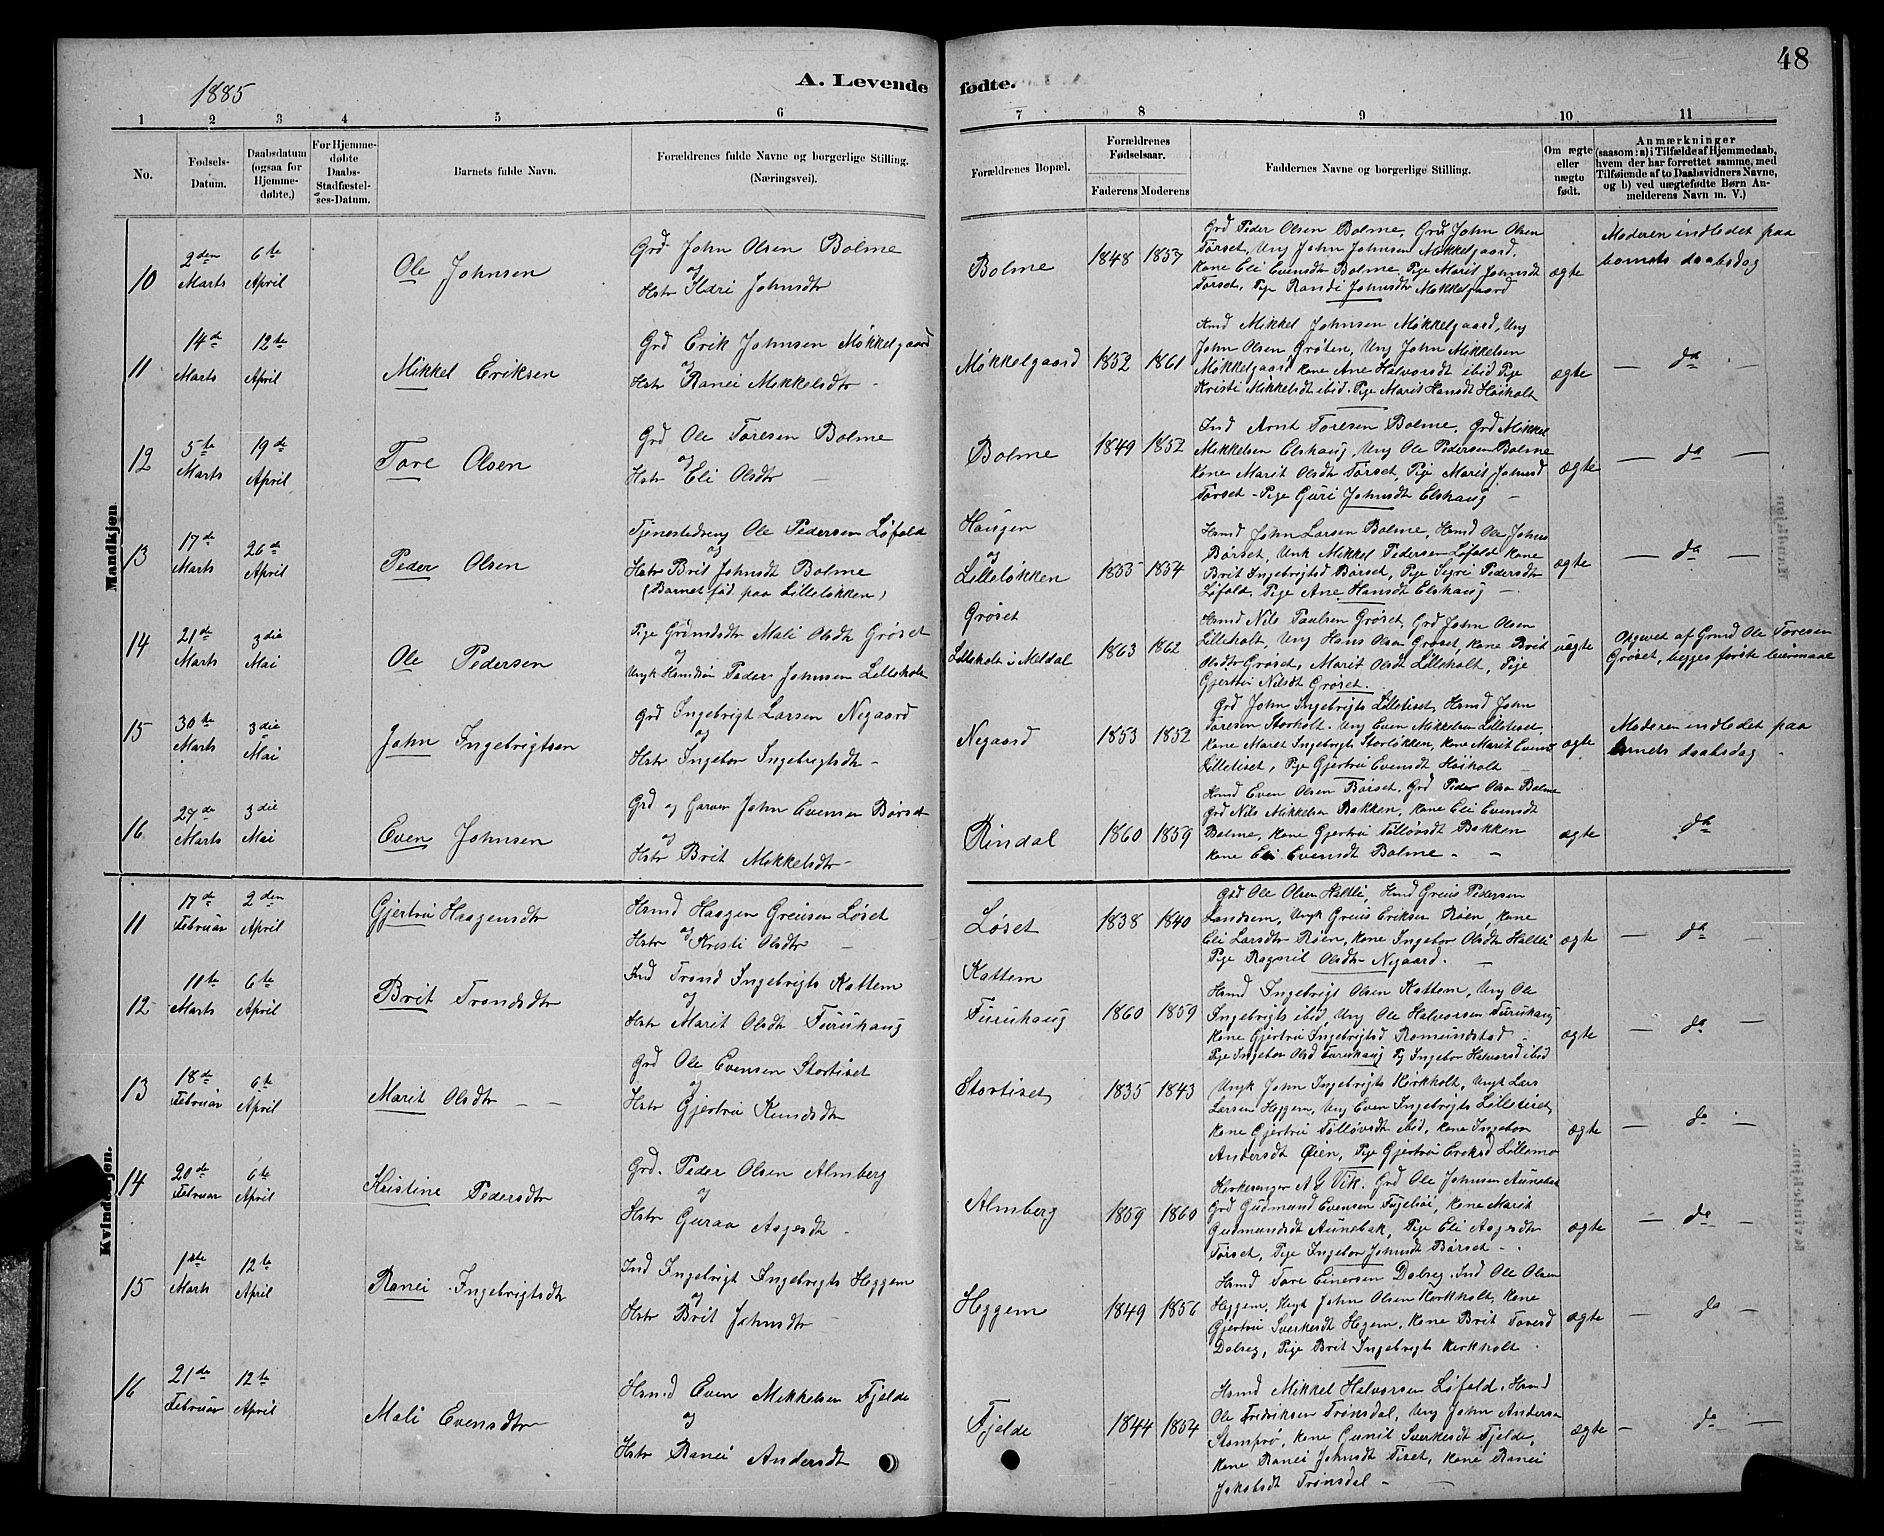 48
1885
A. Levende fødte.
1 2 3 4 5 6 7 8 9 10 11
No.
Fødsels-
Datum.
Daabsdatum
(ogsaa for
Hjemme-
døbte.)
For Hjemme-
døbte
Daabs-
Stadfæstel-
ses-Datum.
Barnets fulde Navn.
Forældrenes fulde Navne og borgerlige Stilling.
(Næringsvei).
Forældrenes Bopæl.
Forældrenes
Fødselsaar.
Faderens Moderens
Faddernes Navne og borgerlige Stilling.
Om ægte
eller
uægte
født.
Anmærkninger
(saasom: a) i Tilfælde af Hjemmedaab,
hvem der har forrettet samme, med
Tilføiende af to Daabsvidners Navne,
og b) ved uægtefødte Børn An-
melderens Navn m. V.)
Mandkjøn
10
2den
Marts
6te
April
Ole Johnsen
Grd John Olsen Bolme
og
Hstr Kari Johnsdtr
Bolme
1848 1857
Grd Peder Olsen Bolme, Grd John Olsen
Torset, Ung John Johnsen Møkkelgaard,
Kone Eli Evensdtr Bolme, Pige Marit Johnsdt
Torset, Pige Randi Johnsdtr Møkkelgaard
ægte
Moderen indledet paa
barnets daabsdag
11
14de
Marts
12te
April
Mikkel Eriksen
Grd Erik Johnsen Møkkelgaard
og
Hstr Ranei Mikkelsdtr -
Møkkelgaard
1852 1861
Mikkel Johnsen Møkkelgaard, Ung
John Olsen Grøten, Ung John Mikkelsen
Møkkelgaard Kone Ane Halvorsdt ibid Pige
Kristi Mikkelsdt ibid. Pige Marit Hansdt Høiholt
ægte
— do —
12
5te
Marts
19de
April
Tore Olsen
Grd Ole Toresen Bolme
og
Hstr Eli Olsdtr —
Bolme
1849 1852
Ind Arnt Toresen Bolme, Grd Mikkel
Mikkelsen Elshaug, Ung Ole Pedersen Bolme
Kone Marit Olsdt Torset, Pige Marit Johnsd
Torset - Pige Guri Johnsdt Elshaug -
ægte
— do —
13
17de
Marts
26de
April
Peder Olsen
Tjenestedreng Ole Pedersen Løfald
og
Hstr Brit Johnsdt Bolme
(Barnet fød paa Lilleløkken)
Haugen
og
Lilleløkken
1855 1854
Hsmd John Larsen Bolme, Hsmd Ole Johns
Børset, Unk Mikkel Pedersen Løfald Kone
Brit Ingebrigtsd Børset, Pige Sigri Pedersdtr
Løfald, Pige Ane Hansdt Elshaug -
ægte
— do —
14
21de
Marts
3die
Mai
Ole Pedersen
Pige Grdmdsdtr Mali Olsdtr Grøset
og
Ungk Hsmdsøn Peder Johnsen Lilleholt
Grøset
Lilleholt i Meldal
1863 1862
Hsmd Nils Paulsen Grøset, Grd John Olsen
Lilleholt, Ung Hans Olsen Grøset, Kone Brit
Olsdtr Grøset, Marit Olsdt Lilleholt, Pige
Gjertru Nilsdt Grøset.
uægte
Opgivet af Grmd Ole Toresen
Grøset, begges første leiermaal
15
30te
Marts
3die
Mai
John Ingebrigtsen
Grd Ingebrigt Larsen Negaard
og
Hstr Ingebor Ingebrigtsdtr -
Negaard
1853 1852
Grd John Ingebrigts Lilletiset, Hsmd John
Toresen Storholt, Ung Even Mikkelsen Lilletiset,
Kone Maret Ingebrigts Storløkken, Kone Marit Evensd
Lilletiset, Pige Gjertru Evensdt Høiholt —
ægte
Moderen indledet paa
barnets daabsdag
16
27de
Marts
3die
Mai
Even Johnsen
Grd og Garver John Evensen Børset
og
Hstr Brit Mikkelsdtr -
Rindal
1860 1859
Hsmd Even Olsen Børset, Grd Peder Olsen Bolme
Grd Nils Mikkelsen Bakken, Kone Eli Evensdt
Bolme, Kone Gjertru Tølløvsdt Bakken
Kone Eli Evensdt Bolme - -
ægte
do
Kvindekjøn.
11
17de
Februar
2den
April
Gjertru Haagensdtr
Hsmd Haagen Greisen Løset
og
Hstr Kristi Olsdtr —
Løset
1838 1840
Grd Ole Olsen Haltli, Hsmd Greis Pedersen
Landsem, Ungk Greis Eriksen Røen, Kone
Eli Larsdtr Røen, Kone Ingebor Olsdtr Haltli
Pige Ragnil Olsdtr Negaard. —
ægte
— do —
12
11te
Marts
6te
April
Brit Trondsdtr
Ind Trond Ingebrigts Kattem
og
Hstr Marit Olsdt Furuhaug
Kattem
Furuhaug
1860 1859
Hsmd Ingebrigt Olsen Kattem, Ung Ole
Ingebrigts ibid, Ung Ole Halvorsen Furuhaug
Kone Gjertru Ingebrigtsd Romundstad -
Pige Ingebor Olsd Furuhaug Pg Ingebor Halvorsd ibid
ægte
— do —
13
18de
Februar
6te
April
Marit Olsdtr — —
Grd Ole Evensen Stortiset
og
Hstr Gjertru Knudsdtr
Stortiset
1835 1843
Ungk John Ingebrigts Kirkholt, Ungk Lars
Larsen Heggem, Ung Even Ingebrigts Lilletiset,
Kone Gjertru Tølløvsdt ibid, Kone Ingebor
Andersdt Øien, Pige Gjertru Eriksd Lillemo
ægte
— do —
14
20de
Februar
6te
April
Kristine Pedersdtr
Grd. Peder Olsen Almberg
og
Hstr Guraa Aagesdt -
Almberg
1859 1860
Kirkesanger A G Vik. Grd Ole Johnsen Aunebak
Grd Gudmund Evensen Fugelsøi, Kone Marit
Gudmundsdt Aunebak, Pige Eli Aagesdtr
Torset, Pige Ingebor Johnsdt Børset - .
ægte
— do —
15
1ste
Marts
12te
April
Ranei Ingebrigtsdtr
Ind Ingebrigt Ingebrigts Heggem
og
Hstr Brit Johnsdtr —
Heggem
1849 1856
Hsmd Tore Einersen Dalseg, Ind Ole Olsen
Heggem, Ungk John Olsen Kirkholt, Kone
Gjertru Sverkesdt Hegem, Kone Brit Toresd
Dalseg, Pige Brit Ingebrigts Kirkholt -
ægte
— do —
16
21de
Februar
12te
April
Mali Evensdtr
Hsmd Even Mikkelsen Fjelde
og
Hstr Ranei Andersdt
Fjelde
1844 1854
Hsmd Mikkel Halvorsen Løfald, Hsmd
Ole Fredriksen Trønsdal, Ung John Anders
Stomprø, Kone Gunil Sverkesdt Fjelde,
Kone Ranei Johnsdt Tiset, Kone Ranei
Jakobsdt Trønsdal - —
ægte
— do —